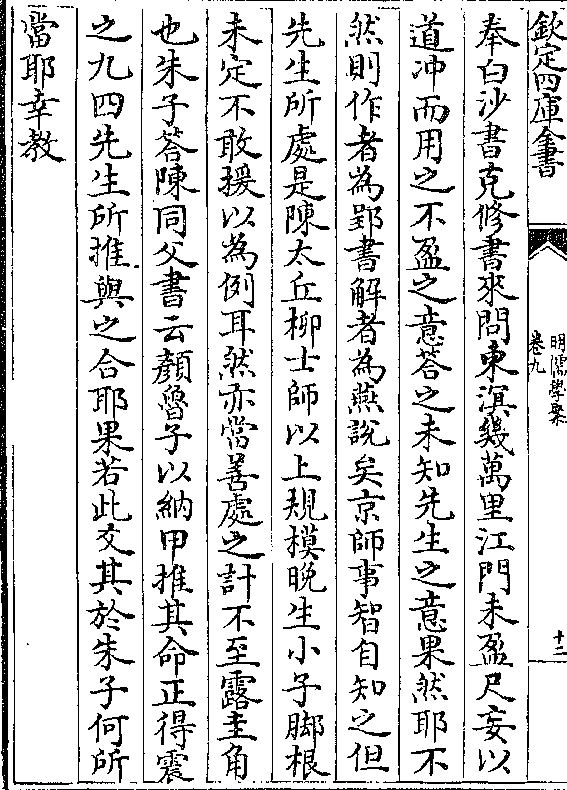 欽定四庫全書
明儒學案
卷九
十三
奉白沙書克修書來問東溟幾萬里江門未盈尺妄以
道冲而用之不盈之意荅之未知先生之意果然耶不
然則作者為郢書解者為燕說矣京師事智自知之但
先生所處是陳太丘柳士師以上規模晚生小子脚根
未定不敢援以為例耳然亦當善處之計不至露圭角
也朱子荅陳同父書云顏魯子以納甲推其命正得震
之九四先生所推與之合耶果若此爻其於朱子何所
當耶幸教